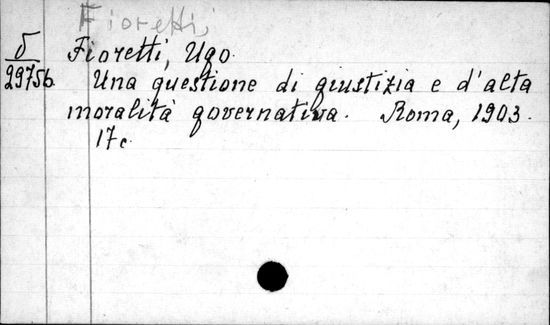 Fioretti,
Fioretti, Ugo.
Una questione di giustizia e d'alta
moralità governativa. Roma, 1903.
17c.
29756.